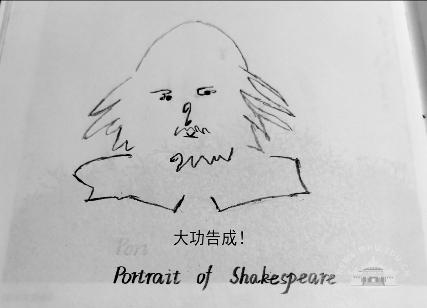 大功告成！
Portrait of Shakespeare